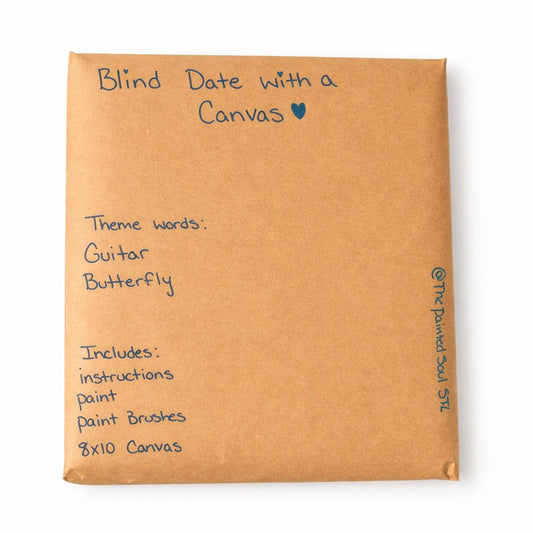 Blind Date with a
Canvas ♥
Theme words:
Guitar
Butterfly
Includes:
instructions
paint
paint Brushes
8x10 Canvas
@The painted Soul STL